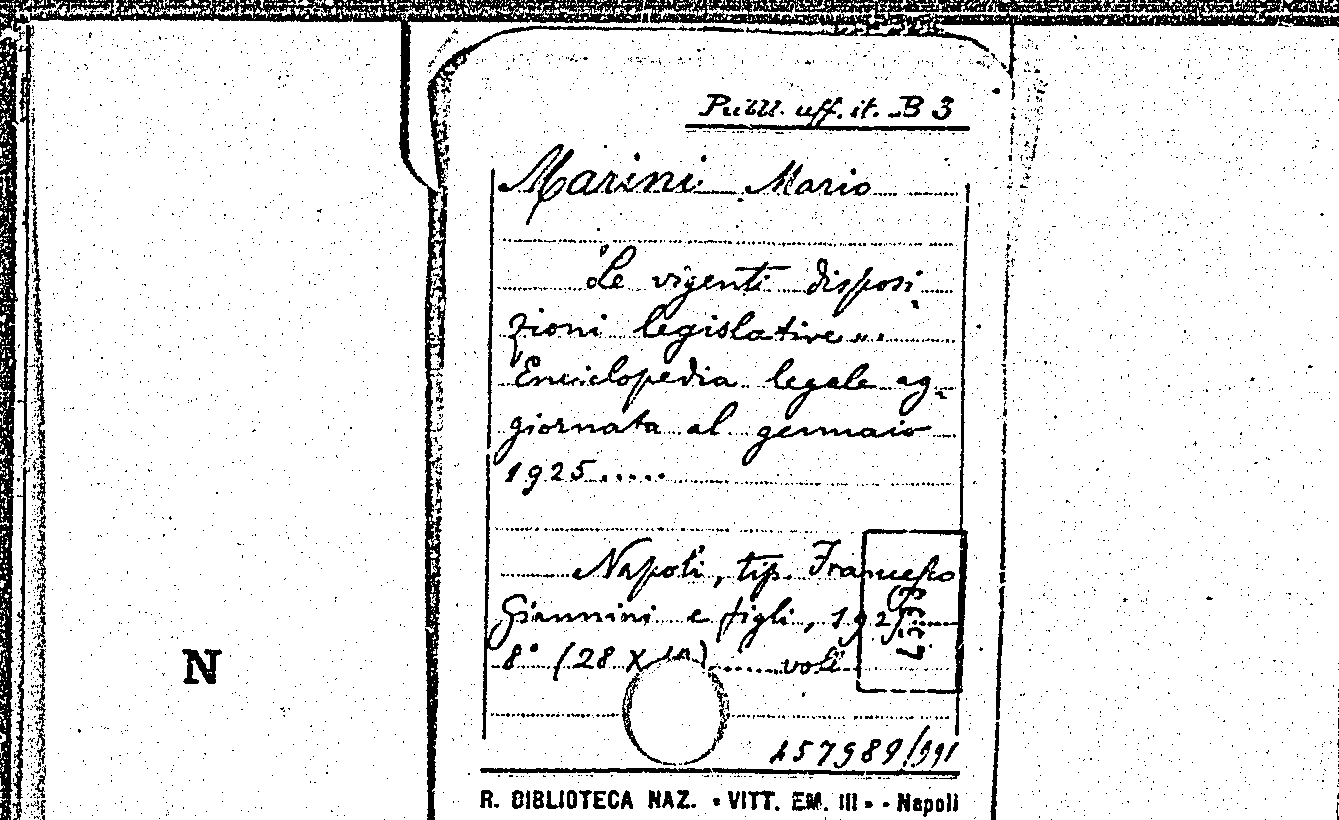 Pubbl. uff. it. B 3
Marini Mario
Le vigenti disposi-
zioni legislative....
Enciclopedia legale ag-
giornata al gennaio
1925.....
Napoli, tip. Francesco
Giannini e figli, 1925
8° (28 X ...... voll.
N
457989/991
R. BIBLIOTECA NAZ. "VITT. EM. III" - Napoli